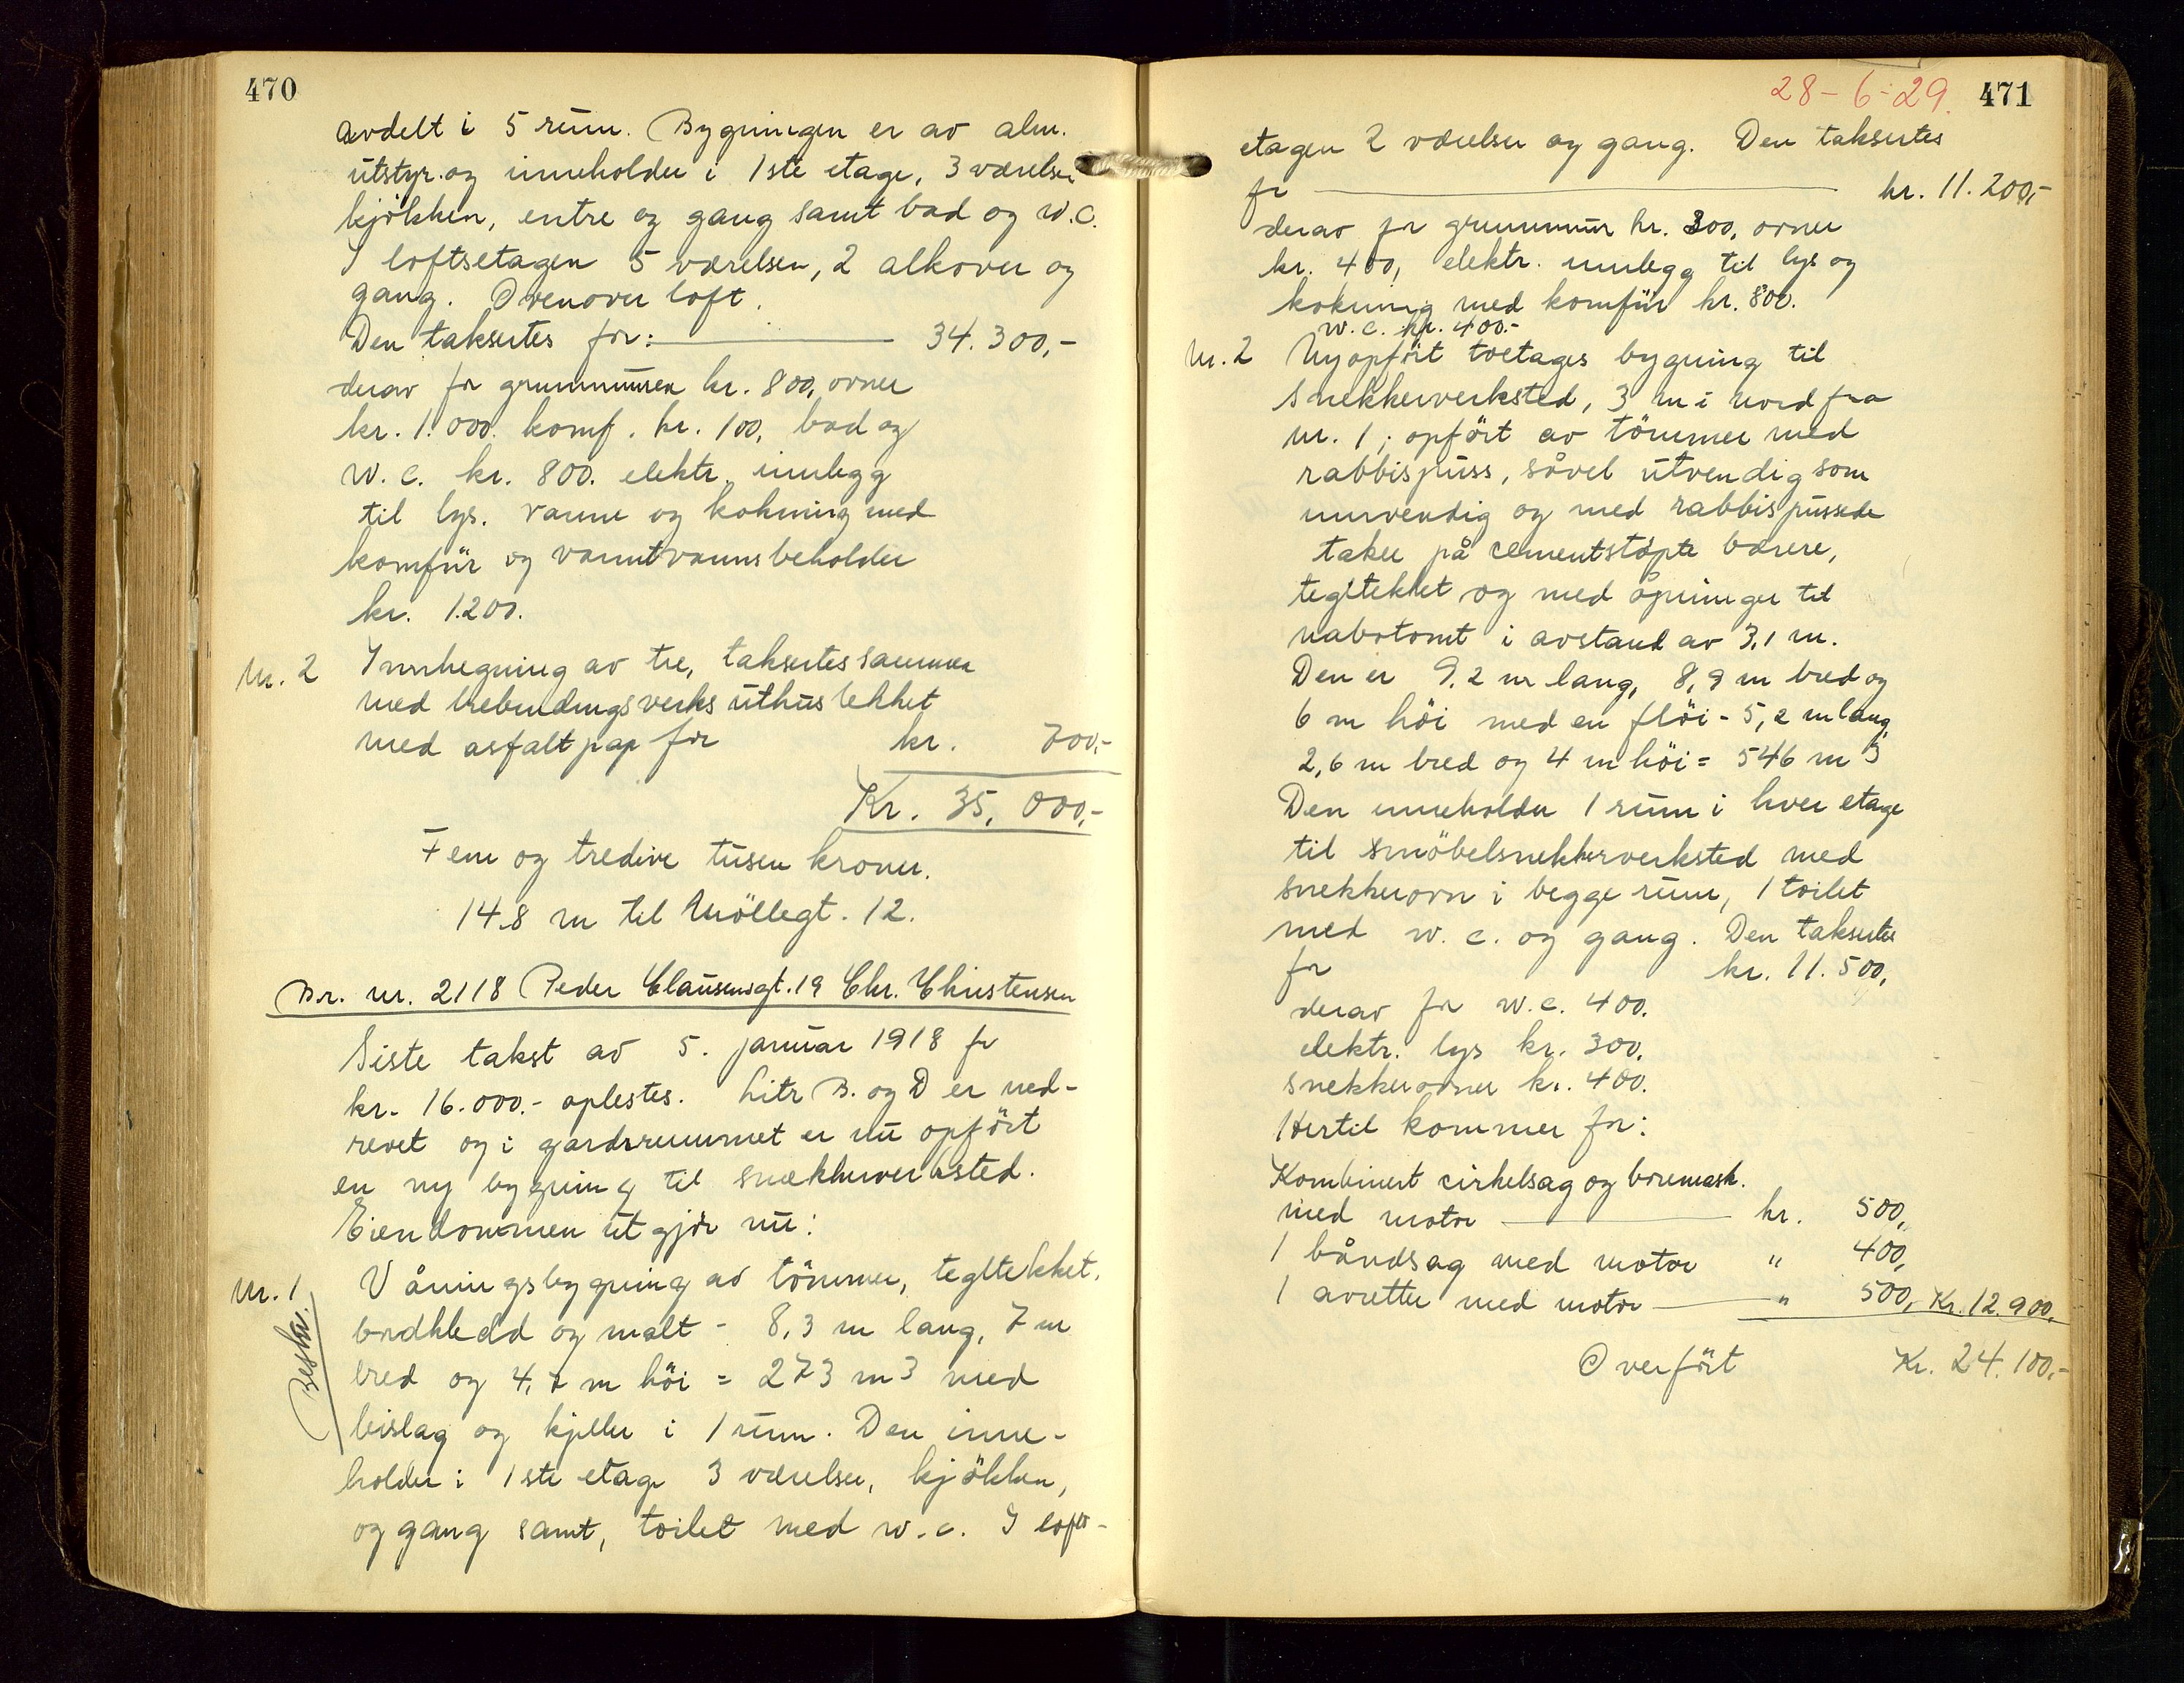 470
avdelt i 5 rum. Bygningen er av alm.
utstyr og inneholder i 1ste etage, 3 værelser
kjökken, entre og gang samt bad og W.C.
I loftsetagen 5 værelser, 2 alkover og
gang. Ovenover loft.
Den taksertes for: 34.300,-
derav for grunnmuren kr. 800, ovner
kr. 1.000. komf. kr. 100, bad og
W.C. kr. 800. elektr. innlegg
til lys. varme og kokning med
komfür og varmtvannsbeholder
kr. 1.200.
Nr. 2 Innhegning av tre, taksertes sammen
med trebindingsverks uthus tekket
med asfaltpap for kr. 700,-
Kr. 35.000,-
Fem og tredive tusen kroner.
14.8 m til Möllegt. 12.
Br. nr. 2118 Peder Clausensgt. 19 Chr. Christensen
Siste takst av 5. januar 1918 for
kr. 16.000.- oplestes. Litr B. og D er ned-
revet og i gardsrummet er nu opfört
en ny bygning til snekkerverksted.
Eiendommen utgjör nu:
Nr. 1 Våningsbygning av tömmer, tegltekket,
Besku.
bordkledd og malt - 8,3 m lang, 7 m
bred og 4,7 m höi = 273 m3 med
bislag og kjeller i 1 rum. Den inne-
holder i 1ste etage 3 værelser, kjökken,
og gang samt, toilet med w.c. I lofts-
28-6-29. 471
etagen 2 værelser og gang. Den taksertes
for kr. 11.200,-
derav for grunnmur kr. 300, ovner
kr. 400, elektr. innlegg til lys og
kokning med komfür kr. 800.
W.C. kr. 400.-
Nr. 2 Nyopfört toetages bygning til
Snekkerverksted, 3 m i nord fra
nr. 1; opfört av tömmer med
rabbispuss, såvel utvendig som
innvendig og med rabbispussede
taker på cementstöpte bærere,
tegltekket og med åpninger til
nabotomt i avstand av 3,1 m.
Den er 9,2 m lang, 8,9 m bred og
6 m höi med en flöi - 5,2 m lang,
2,6 m bred og 4 m höi = 546 m3
Den inneholder 1 rum i hver etage
til smöbelsnekkerverksted med
snekkerovn i begge rum, 1 toilet
med w.c. og gang. Den taksertes
for kr. 11.500,
derav for w.c. 400.
elektr. lys kr. 300,
snekkerovner kr. 400.
Hertil kommer for:
Kombinert cirkelsag og boremask.
med motor kr. 500,
1 båndsag med motor " 400,
1 avretter med motor " 500,- Kr. 12.900,
Overfört Kr. 24.100,-